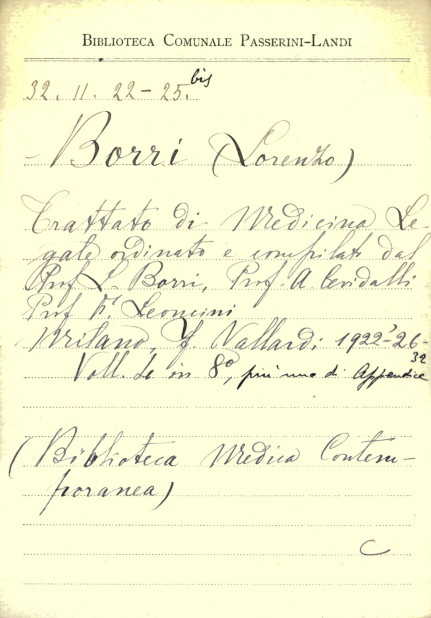 BIBLIOTECA COMUNALE PASSERINI-LANDI
32. 11. 22-25. bis
- Borri (Lorenzo)
Trattato di Medicina Le-
gale ordinato e compilato dal
Prof L. Borri, Prof. A. Cevidalli
Prof. F. Leoncini
Milano, F. Vallardi 1922-26-
32
Voll. 4 in 8º, più uno di Appendice
(Biblioteca Medica Contem-
poranea)
C